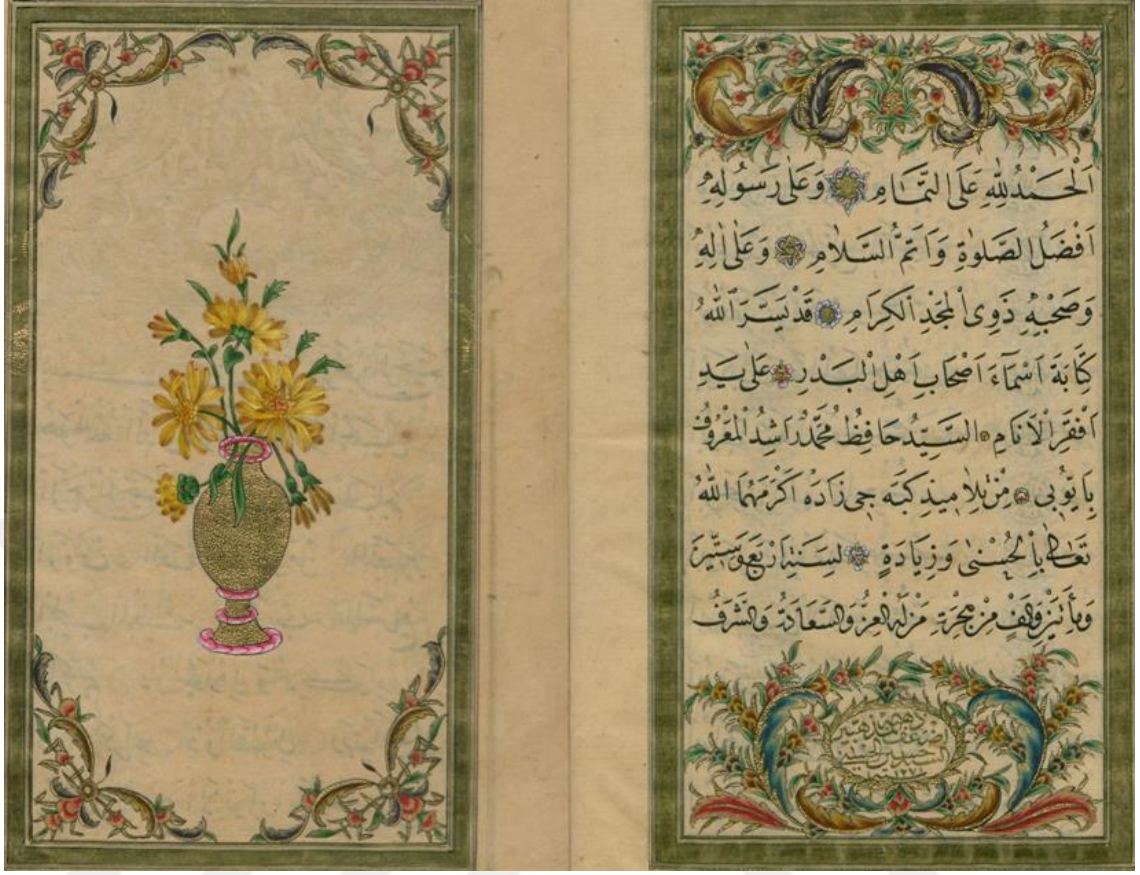 اَلْحَمْدُ لِلّٰهِ عَلَى التَّمَامِ وَعَلٰى رَسُولِهِ
اَفْضَلُ الصَّلٰوةِ وَاَتَمُّ السَّلَامِ وَعَلٰى اٰلِهِ
وَصَحْبِهِ ذَوِى الْمَجْدِ الْكِرَامِ قَدْ يَسَّرَ اللّٰهُ
كِتَابَةَ اَسْمَاءَ اَصْحَابِ اَهْلِ الْبَدْرِ عَلٰى يَدِ
اَفْقَرِ الْاَنَامِ السَّيِّدُ حَافِظُ مُحَمَّدْ رَاشِدُ الْمَعْرُوفُ
بِاَيُّوبِى مِنْ تَلَامِيذِ كبَه جِى زَادَه اَكْرَمَهُمَا اللّٰهُ
تَعَالٰى بِالْحُسْنٰى وَزِيَادَةٍ لِسَنَةِ اَرْبَعَ وَسِتِّينَ
وَمِأَتَيْنِ وَاَلْفٍ مِنْ هِجْرَةِ مَنْ لَهُ الْعِزُّ وَالسَّعَادَةُ وَالشَّرَفُ